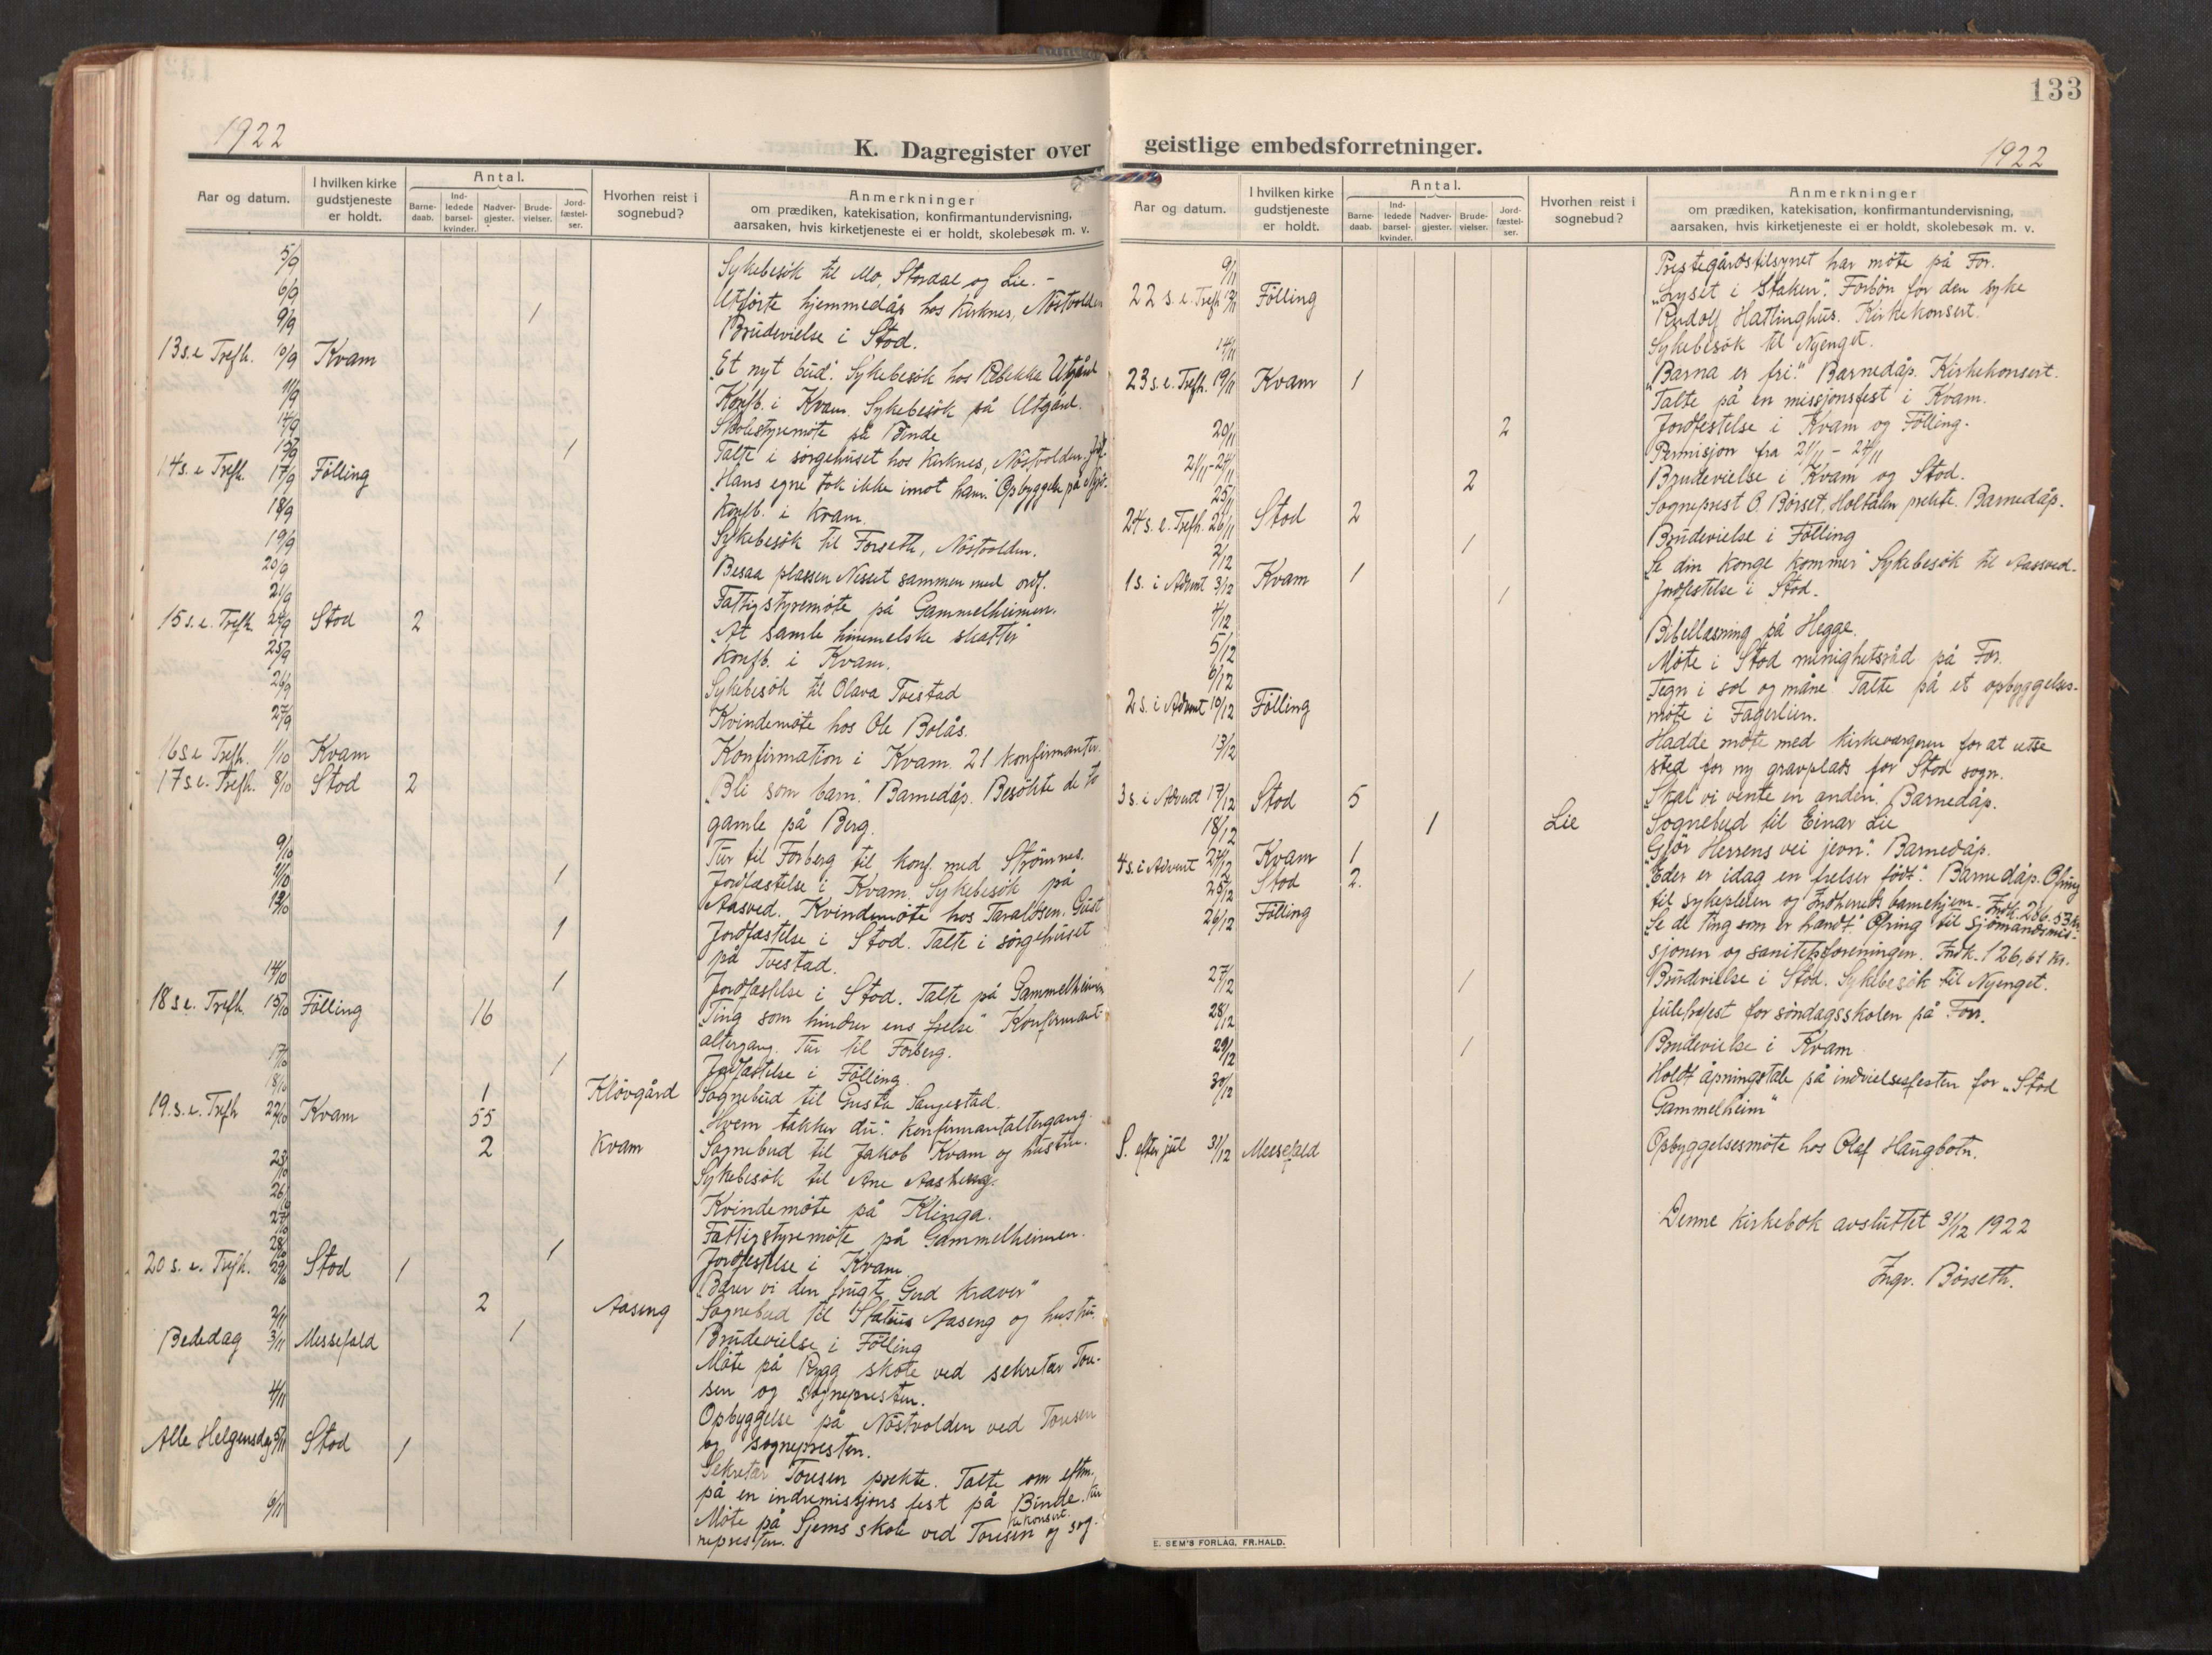 1922
K. Dagregister over
Aar og datum.
I hvilken kirke gudstjeneste er holdt.
Antal.
Barne-daab.
Ind-ledede barsel-kvinder.
Nadver-gjester.
Brude-vielser.
Jord-fæstel-ser.
Hvorhen reist i sognebud?
Anmerkninger
om prædiken, katekisation, konfirmantundervisning,
aarsaken, hvis kirketjeneste ei er holdt, skolebesøk m. v.
5/9 Sykebesök til Mo, Stordal og Lie. -
6/9 Utförte hjemmedåp hos Kirknes, Nöstvolden
9/9 1 Brudevielse i Stod.
13 s. e Trefh. 10/9 Kvam "Et nyt bud". Sykebesök hos Rebekka Utgård
11/9 Konfb. i Kvam. Sykebesök på Utgård.
14/9 Skolestyremöte på Binde
1 Talte i sörgehuset hos Kirknes, Nöstvolden.
14 s. e Trefh. 17/9 Fölling "Hans egne tok ikke imot ham." Opbyggelse på
18/9 Konfb. i Kvam.
19/9 Sykebesök til Forseth, Nöstvolden.
20/9 Besaa plassen Nesset sammen med ordf.
21/9 Fattigstyremöte på Gammelheimen.
15 s. e. Trefh. 24/9 Stod 2 "At samle himmelske skatter"
25/9 Konfb. i Kvam.
26/9 Sykebesök til Olava Tvestad
27/9 Kvindemöte hos Ole Bolås.
16 s. e Trefh. 1/10 Kvam Konfirmation i Kvam. 21 konfirmanter.
17 s. e. Trefh. 8/10 Stod 2 "Bli som barn". Barnedåp. Besökte de to
gamle på Berg.
9/10 Tur til Forberg til konf. med Strömnes.
11/10 1 Jordfæstelse i Kvam. Sykebesök på
Aasved. Kvindemöte hos Taraldsen. Gust
1 Jordfæstelse i Stod. Talte i sörgehuset
på Tvestad.
14/10 1 Jordfæstelse i Stod. Talte på Gammelheimen
18 s. e. Trefh. 15/10 Fölling 16 "Ting som hindrer ens frelse" Konfirmant-
altergang. Tur til Forberg.
17/10 1 Jordfæstelse i Fölling.
18/10 1 Klövgård Sognebud til Gusta
19. s. e. Trefh 22/10 Kvam 55 "Hvem takker du?" Konfirmantaltergang.
2 Kvam Sognebud til Jakob Kvam og hustru.
23/10 Sykebesök til Ane Aasheng.
26/10 Kvindemöte på Klinga.
27/10 Fattigstyremöte på Gammelheimen.
28/10 1 Jordfestelse i Kvam
20 s. e. Trefh. 29/10 Stod 1 "Bærer vi den frugt Gud kræver"
2 Aaseng Sognebud til Aaseng og hustru.
2/11 1 Brudevielse i Fölling
Bededag 3/11 Messefald Möte på Rygg skole ved sekretær Tou-
sen og sognepresten.
4/11 Opbyggelse på Nöstvolden ved Tousen
og sognepresten.
Alle Helgensdag 5/11 Stod 1 Sekretær Tousen prekte. Talte om eftm.
på en indremissjons fest på Binde.
6/11 Möte på Gjems skole ved Tousen og sog-
nepresten.
133
geistlige embedsforretninger.
1922
Aar og datum.
I hvilken kirke gudstjeneste er holdt.
Antal.
Barne-daab.
Ind-ledede barsel-kvinder.
Nadver-gjester.
Brude-vielser.
Jord-fæstel-ser.
Hvorhen reist i sognebud?
Anmerkninger
om prædiken, katekisation, konfirmantundervisning,
aarsaken, hvis kirketjeneste ei er holdt, skolebesøk m. v.
9/11 Prestegårdstilsynet har möte på For.
22 s. e. Trefh 12/11 Fölling "Lyset i Staken". Forbön for den syke
Rudolf Hatlinghus. Kirkekonsert.
14/11 Sykebesök til Nyenget.
23 s. e. Trefh. 19/11 Kvam 1 "Barna er fri." Barnedåp. Kirkekonsert.
Talte på en missjonsfest i Kvam.
20/11 2 Jordfestelse i Kvam og Fölling.
21/11-24/11 Permisjon fra 21/11 - 24/11
25/11 2 Brudevielse i Kvam og Stod.
24 s. e. Trefh. 26/11 Stod 2 Sogneprest O. Börset, Holtålen prekte. Barnedåp.
2/12 1 Brudevielse i Fölling
1 s. i Advent 3/12 Kvam 1 "Se din konge kommer" Sykebesök til Aassved-
4/12 1 Jordfestelse i Stod.
5/12 Bibellæsning på Hegge.
6/12 Möte i Stod menighetsråd på For.
2 s. i Advent 10/12 Fölling Tegn i sol og måne. Talte på et opbyggelses-
möte i Fagerlien.
13/12 Hadde möte med kirkeværgeren for at utse
sted for ny gravplads for Stod sogn.
3 s. i Advent 17/12 Stod 5 "Skal vi vente en anden". Barnedåp.
18/12 1 Lie Sognebud til Einar Lie
4 s. i Advent 24/12 Kvam 1 "Gjör Herrens vei jevn". Barnedåp.
25/12 Stod 2. "Eder er idag en frelser födt". Barnedåp. Ofring
til sykepleien og Indherreds barnehjem. Indk. 286.53 kr.
26/12 Fölling "Se de ting som er hændt". Ofring til Sjömandsmis-
sjonen og sanitetsforeningen. Indk. 126,61 kr.
27/12 1 Brudevielse i Stod. Sykebesök til Nyenget.
28/12 Juletrefest for söndagsskolen på For.
29/12 1 Brudevielse i Kvam
30/12 Holdt åpningstale på indvielsesfesten for "Stod
Gammelheim"
S. efter jul 31/12 Messefald Opbyggelsesmöte hos Olaf Haugbotn.
Denne kirkebok avsluttet 31/12 1922
Ingv. Börseth.
E. SEM'S FORLAG, FR.HALD.